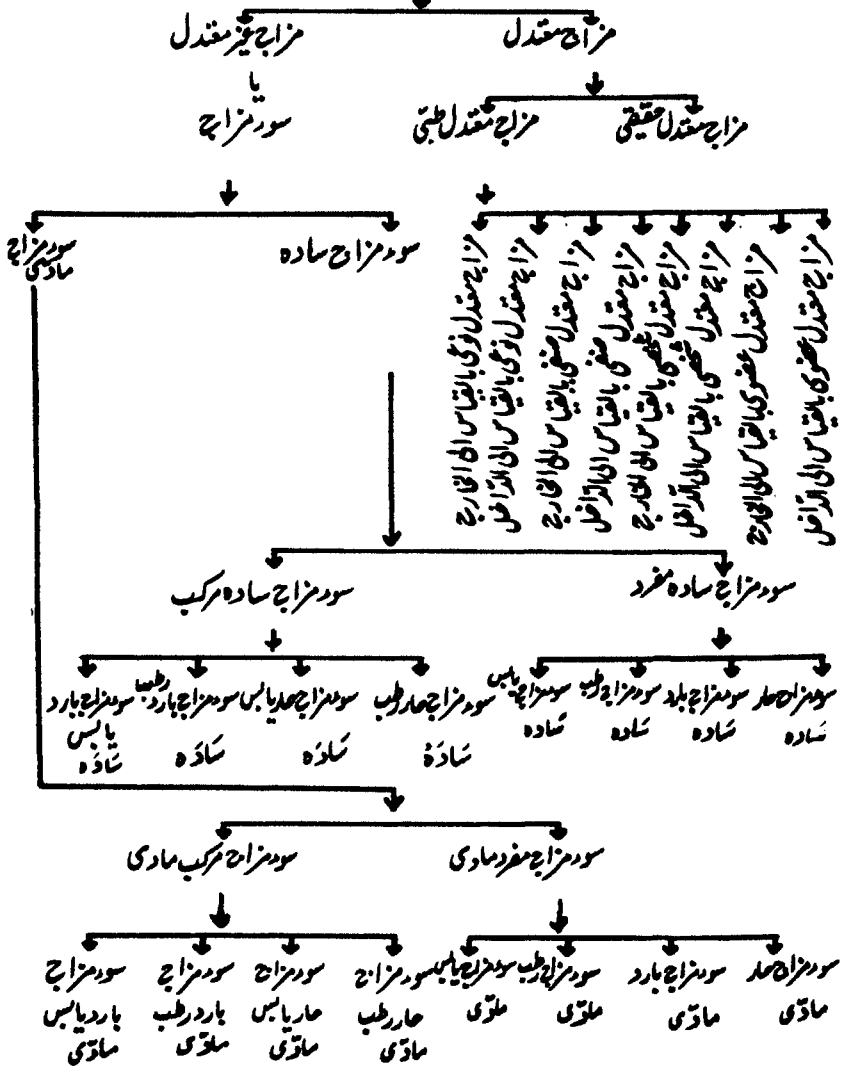 مزاج معتدل
مزاج غیر معتدل
یا
سوء مزاج
مزاج معتدل حقیقی
مزاج معتدل طبّی
مزاج معتدل عضوی بالقیاس الی الدّاخل
مزاج معتدل عضوی بالقیاس الی الخارج
مزاج معتدل شخصی بالقیاس الی الدّاخل
مزاج معتدل شخصی بالقیاس الی الخارج
مزاج معتدل صنفی بالقیاس الی الدّاخل
مزاج معتدل صنفی بالقیاس الی الخارج
مزاج معتدل نوعی بالقیاس الی الدّاخل
مزاج معتدل نوعی بالقیاس الی الخارج
سوء مزاج ساده
سوء مزاج
مادّی
سوء مزاج ساده مفرد
سوء مزاج ساده مرکب
سوء مزاج حار
ساده
سوء مزاج بارد
ساده
سوء مزاج رطب
ساده
سوء مزاج یابس
ساده
سوء مزاج حار رطب
سَادَہ
سوء مزاج حار یابس
سَادَہ
سوء مزاج بارد رطب
سَادَہ
سوء مزاج بارد
یابس
سَادَہ
سوء مزاج مفرد مادی
سوء مزاج مرکب مادی
سوء مزاج حار
مادّی
سوء مزاج بارد
مادّی
سوء مزاج رطب
مادّی
سوء مزاج یابس
مادّی
سوء مزاج
حار رطب
مادّی
سوء مزاج
حار یابس
مادّی
سوء مزاج
بارد رطب
مادّی
سوء مزاج
بارد یابس
مادّی